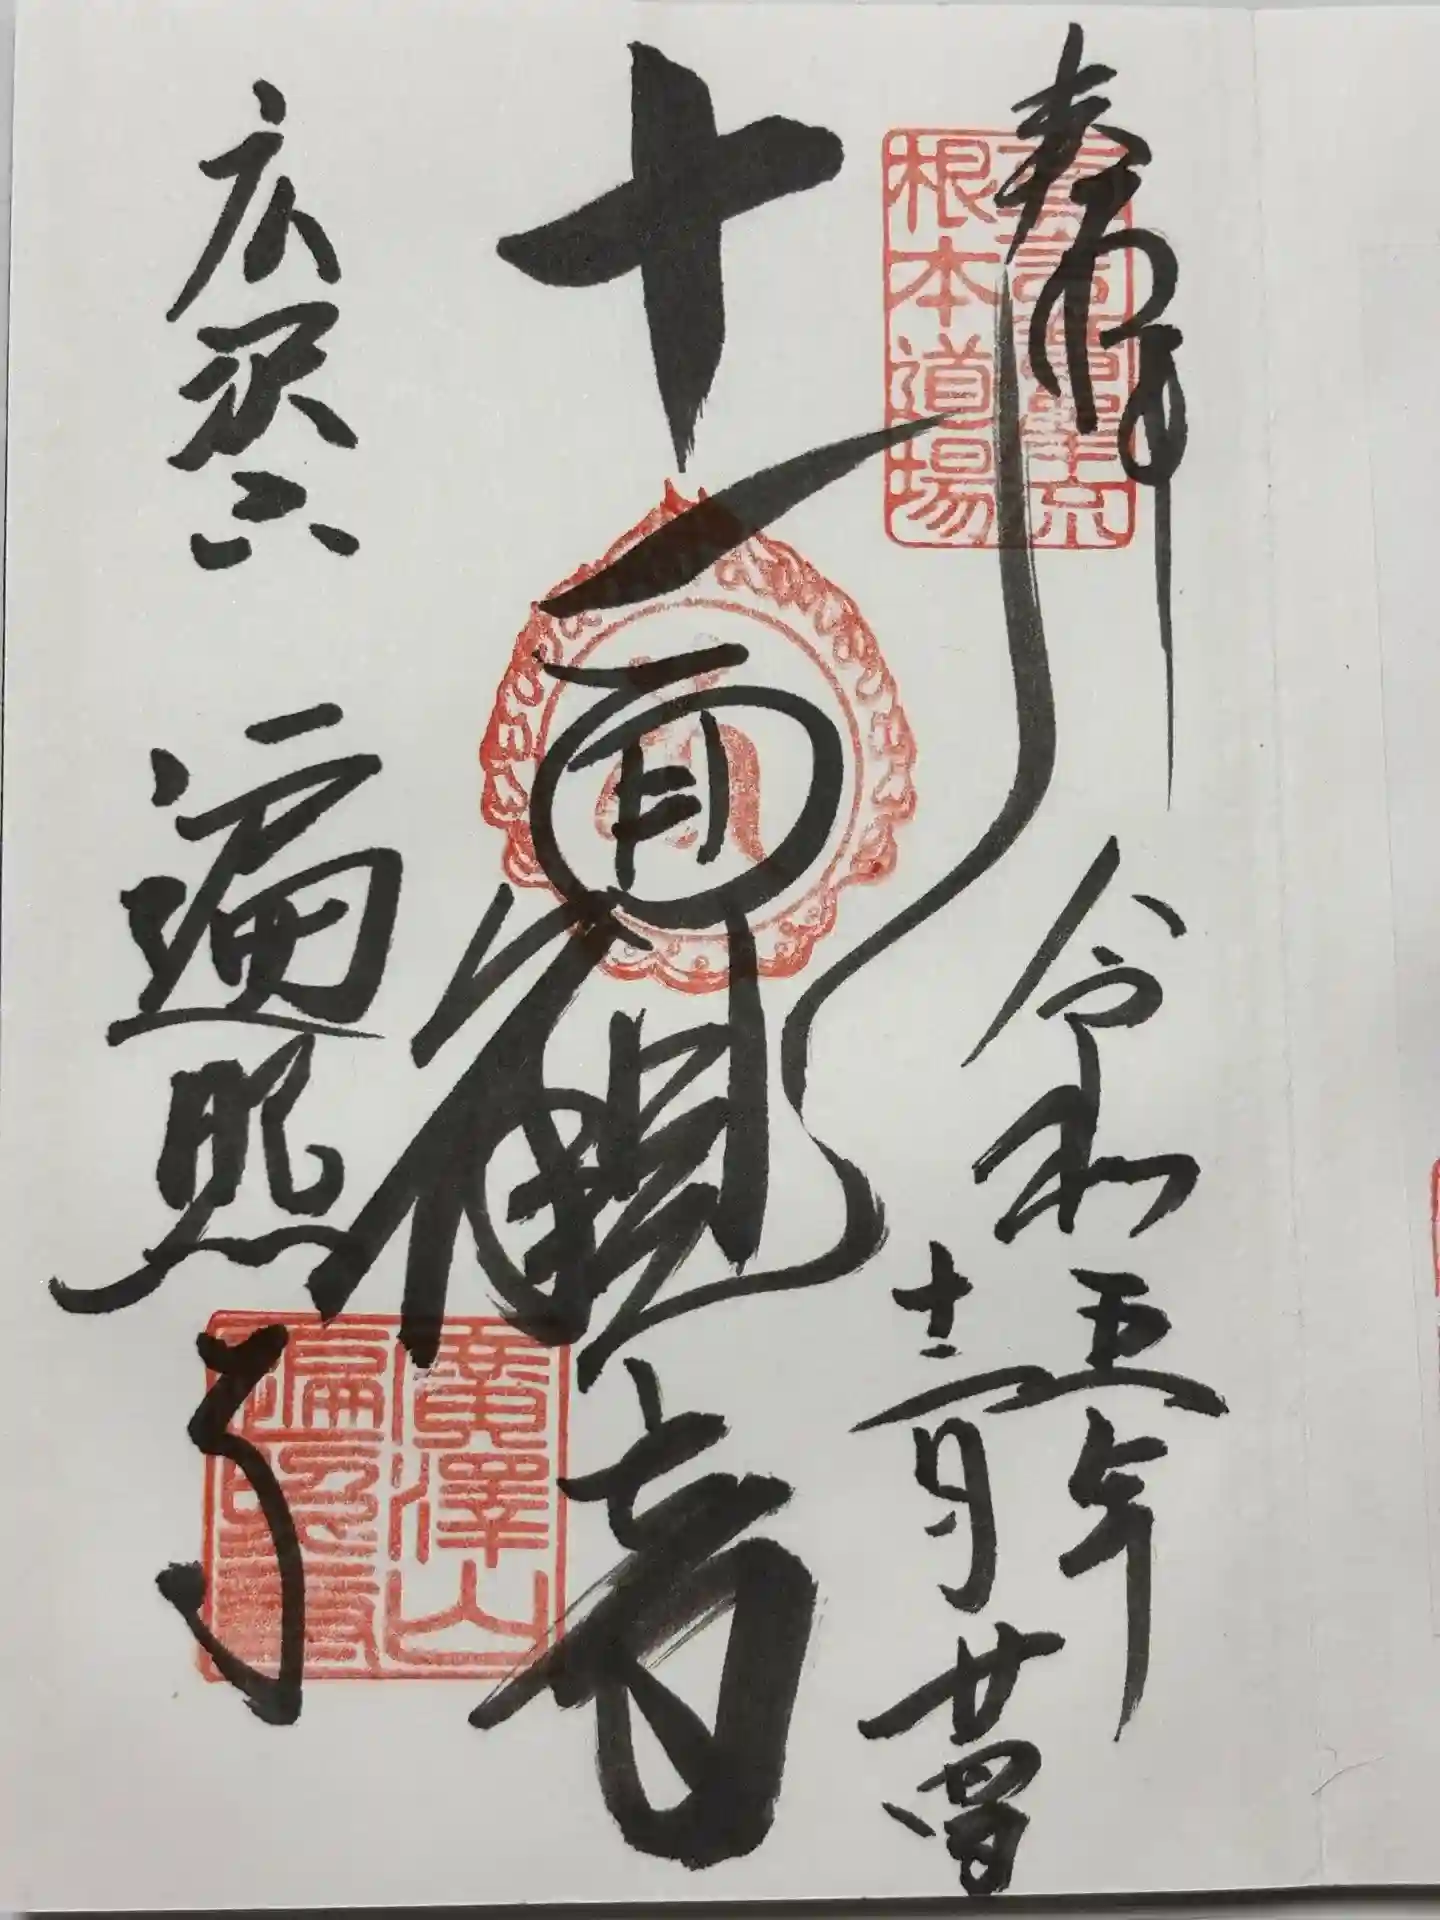 奉拝
令和五年
十二月廿
根本道場
十一面観音
広沢山 遍照寺
廣澤山
遍照寺